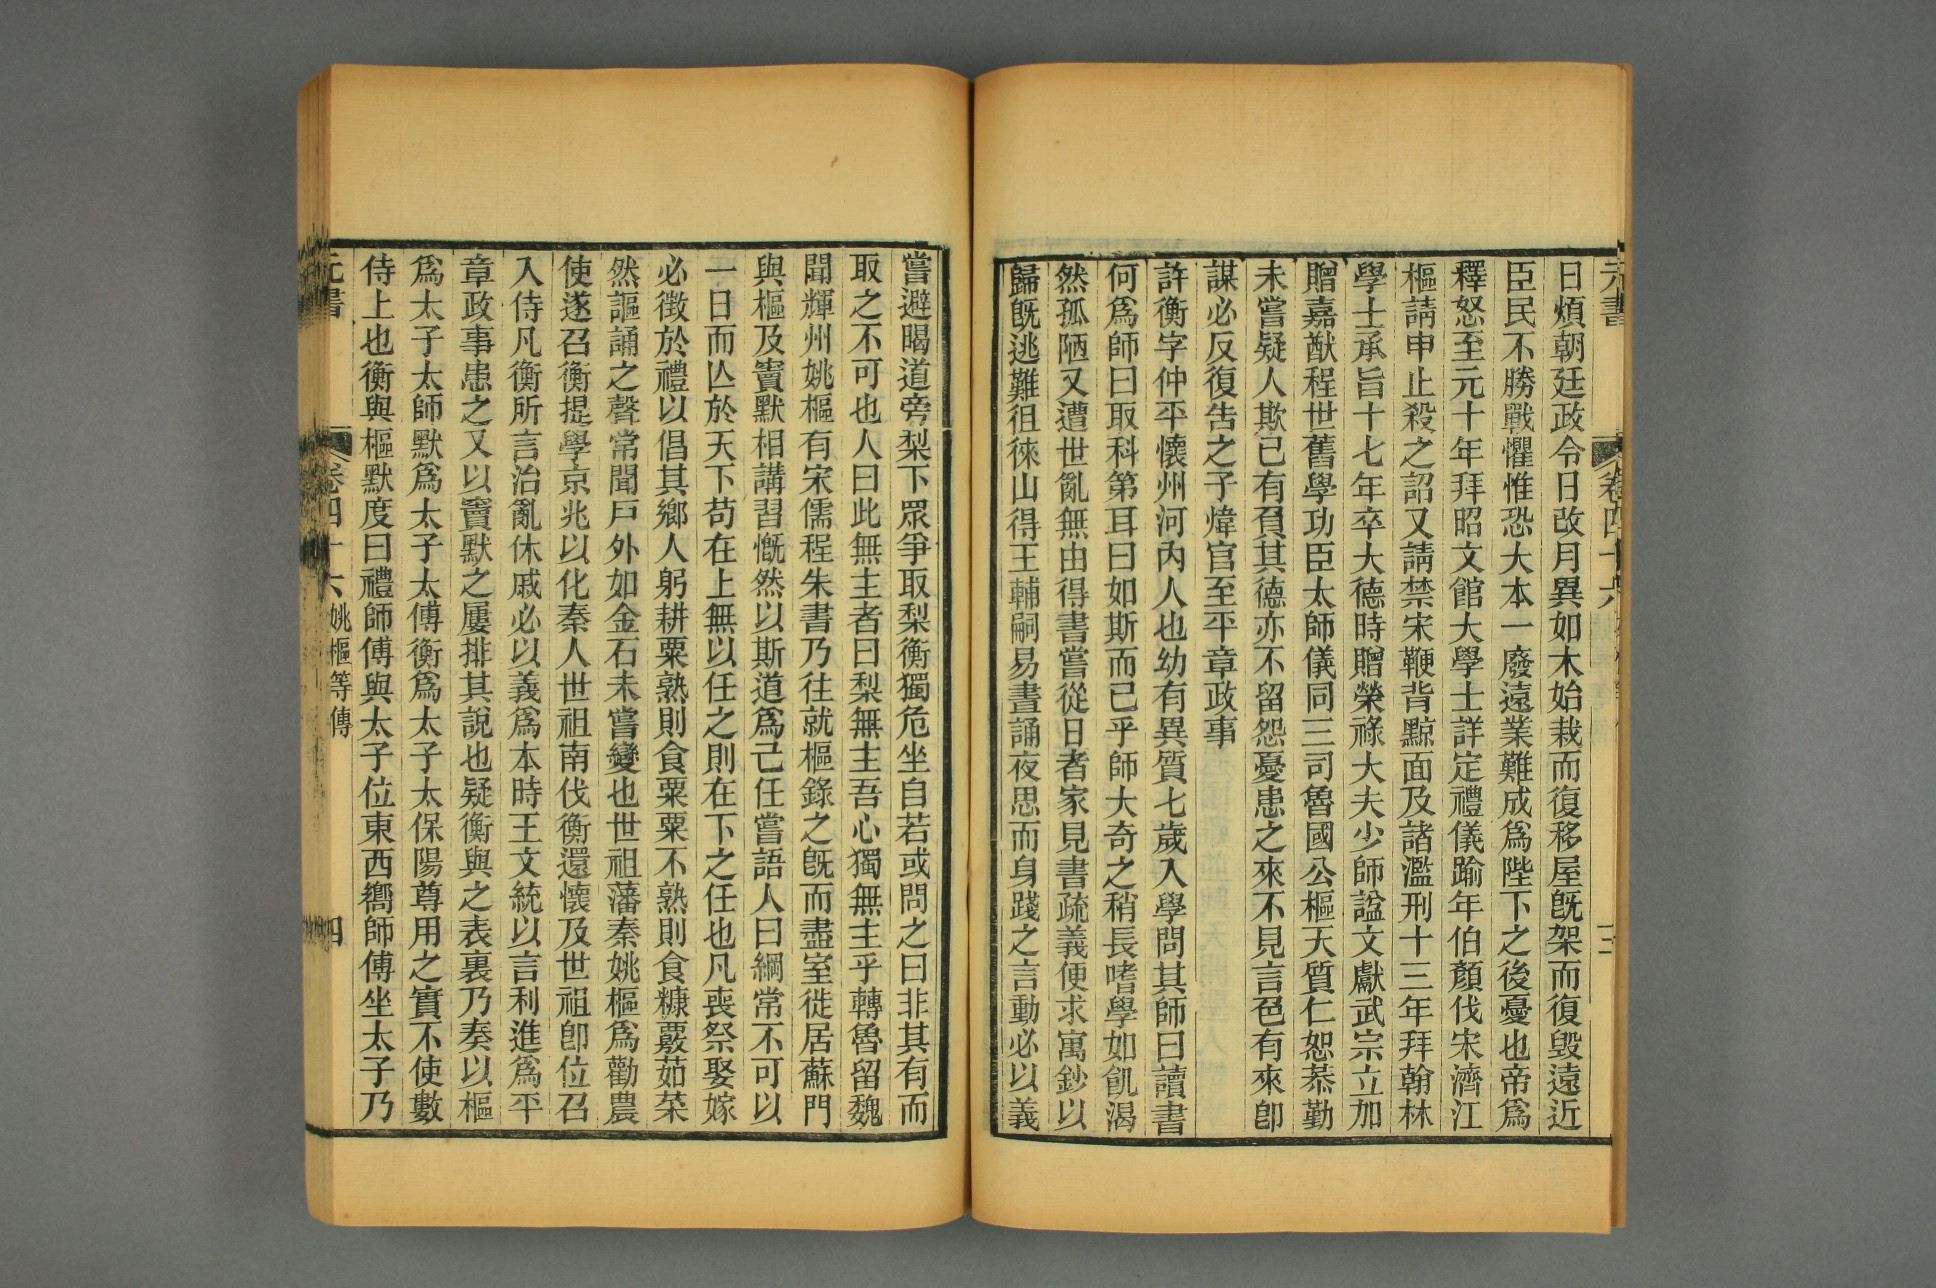 日煩朝廷政令日改月異如木始栽而復移屋旣架而復毀遠近
臣民不勝戰懼惟恐大本一廢遠業難成爲陛下之後憂也帝爲
釋怒至元十年拜昭文館大學士詳定禮儀踰年伯顏伐宋濟江
樞請申止殺之詔又請禁宋鞭背黥面及諸濫刑十三年拜翰林
學士承旨十七年卒大德時贈榮祿大夫少師諡文獻武宗立加
贈嘉猷程世舊學功臣太師儀同三司魯國公樞天質仁恕恭勤
未嘗疑人欺己有負其德亦不留怨憂患之來不見言色有來卽
謀必反復告之子煒官至平章政事
許衡字仲平懷州河內人也幼有異質七歲入學問其師曰讀書
何爲師曰取科第耳曰如斯而已乎師大奇之稍長嗜學如飢渴
然孤陋又遭世亂無由得書嘗從日者家見書疏義便求寓鈔以
歸旣逃難徂徠山得王輔嗣易晝誦夜思而身踐之言動必以義
嘗避暍道旁梨下眾爭取梨衡獨危坐自若或問之曰非其有而
取之不可也人曰此無主者曰梨無主吾心獨無主乎轉魯留魏
聞輝州姚樞有宋儒程朱書乃往就樞錄之旣而盡室徙居蘇門
與樞及竇默相講習慨然以斯道爲己任嘗語人曰綱常不可以
一日而亾於天下苟在上無以任之則在下之任也凡喪祭娶嫁
必徵於禮以倡其鄉人躬耕粟熟則食粟粟不熟則食糠覈茹菜
然謳誦之聲常聞戶外如金石未嘗變也世祖藩秦姚樞爲勸農
使遂召衡提學京兆以化秦人世祖南伐衡還懷及世祖卽位召
入侍凡衡所言治亂休戚必以義爲本時王文統以言利進爲平
章政事患之又以竇默之屢排其說也疑衡與之表裏乃奏以樞
爲太子太師默爲太子太傅衡爲太子太保陽尊用之實不使數
侍上也衡與樞默度曰禮師傅與太子位東西嚮師傅坐太子乃
元書
卷四十六
姚樞等傳
四